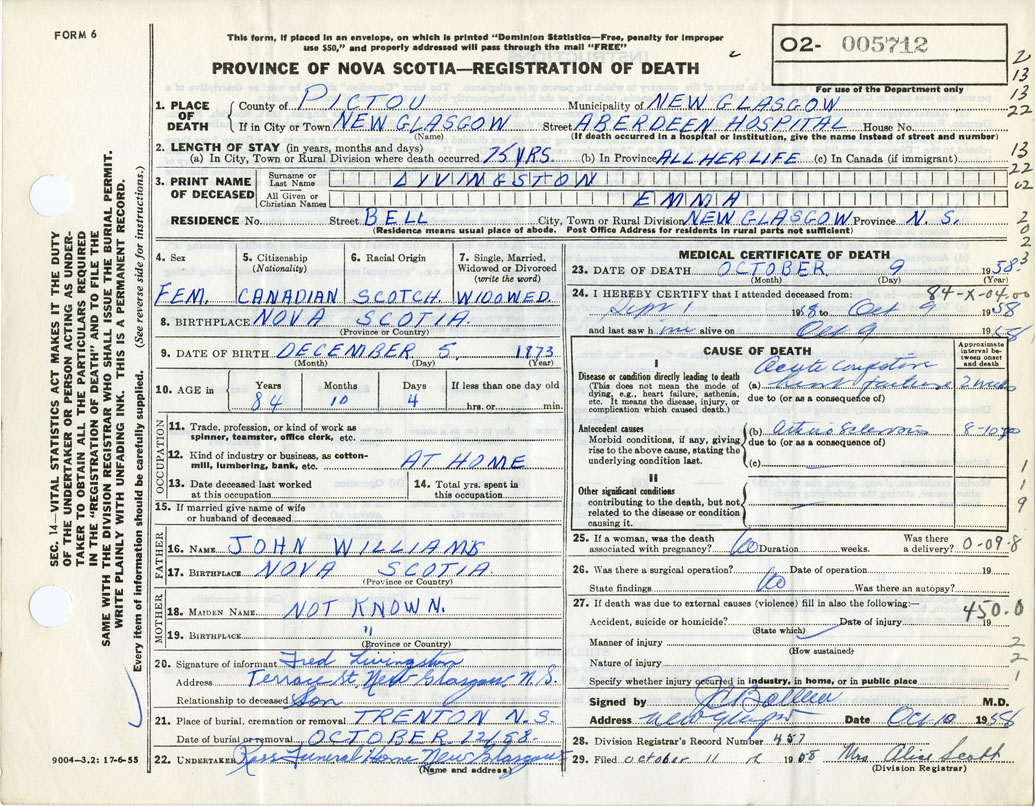 FORM 6
This form, if placed in an envelope, on which is printed "Dominion Statistics—Free, penalty for improper
use $50," and properly addressed will pass through the mail "FREE"
PROVINCE OF NOVA SCOTIA—REGISTRATION OF DEATH
02- 005712
For use of the Department only
2
13
13
22
13
22
02
2
0
2
3
SEC. 14—VITAL STATISTICS ACT MAKES IT THE DUTY
OF THE UNDERTAKER OR PERSON ACTING AS UNDER-
TAKER TO OBTAIN ALL THE PARTICULARS REQUIRED
IN THE "REGISTRATION OF DEATH" AND TO FILE THE
SAME WITH THE DIVISION REGISTRAR WHO SHALL ISSUE THE BURIAL PERMIT.
WRITE PLAINLY WITH UNFADING INK. THIS IS A PERMANENT RECORD.
Every item of information should be carefully supplied. (See reverse side for instructions.)
1. PLACE OF DEATH
County of PICTOU Municipality of NEW GLASGOW
If in City or Town NEW GLASGOW Street ABERDEEN HOSPITAL House No.
(Name) (If death occurred in a hospital or institution, give the name instead of street and number)
2. LENGTH OF STAY (in years, months and days)
(a) In City, Town or Rural Division where death occurred 75 YRS. (b) In Province ALL HER LIFE (c) In Canada (if immigrant)
3. PRINT NAME OF DECEASED
Surname or Last Name LIVINGSTON
All Given or Christian Names EMMA
RESIDENCE No. Street BELL City, Town or Rural Division NEW GLASGOW Province N. S.
(Residence means usual place of abode. Post Office Address for residents in rural parts not sufficient)
4. Sex
FEM.
5. Citizenship
(Nationality)
CANADIAN
6. Racial Origin
SCOTCH
7. Single, Married,
Widowed or Divorced
(write the word)
WIDOWED.
8. BIRTHPLACE NOVA SCOTIA
(Province or Country)
9. DATE OF BIRTH DECEMBER 5, 1873
(Month) (Day) (Year)
10. AGE in
Years Months Days If less than one day old
84 10 4 hrs. or min.
OCCUPATION
11. Trade, profession, or kind of work as
spinner, teamster, office clerk, etc.
12. Kind of industry or business, as cotton-
mill, lumbering, bank, etc. AT HOME
13. Date deceased last worked
at this occupation
14. Total yrs. spent in
this occupation
15. If married give name of wife
or husband of deceased
FATHER
16. NAME JOHN WILLIAMS
17. BIRTHPLACE NOVA SCOTIA.
(Province or Country)
MOTHER
18. MAIDEN NAME NOT KNOWN.
19. BIRTHPLACE "
(Province or Country)
20. Signature of informant Fred Livingston
Address Terrace St. New Glasgow, N.S.
Relationship to deceased Son
21. Place of burial, cremation or removal TRENTON N.S.
Date of burial or removal OCTOBER 12/58.
22. UNDERTAKER Ross Funeral Home New Glasgow
(Name and address)
9004—3.2: 17-6-55
MEDICAL CERTIFICATE OF DEATH
23. DATE OF DEATH OCTOBER 9 1958.
(Month) (Day) (Year)
24. I HEREBY CERTIFY that I attended deceased from: 84-X-04.00
Sept 1 1958 to Oct 9 1958
and last saw h alive on Oct 9 1958
CAUSE OF DEATH
Approximate
interval be-
tween onset
and death
I
Disease or condition directly leading to death
(This does not mean the mode of
dying, e.g., heart failure, asthenia,
etc. It means the disease, injury, or
complication which caused death.)
Acute congestive
(a) heart failure
due to (or as a consequence of)
Antecedent causes
Morbid conditions, if any, giving
rise to the above cause, stating the
underlying condition last.
(b) arteriosclerosis 8-10
due to (or as a consequence of)
(c)
II
Other significant conditions
contributing to the death, but not
related to the disease or condition
causing it.
1
9
25. If a woman, was the death
associated with pregnancy? No Duration weeks. Was there
a delivery? 0-09-8
26. Was there a surgical operation? Date of operation 19
State findings No Was there an autopsy?
27. If death was due to external causes (violence) fill in also the following:— 450.0
Accident, suicide or homicide? Date of injury 19
(State which)
Manner of injury 2
(How sustained)
Nature of injury 2
Specify whether injury occurred in industry, in home, or in public place 1
Signed by M.D.
Address New Glasgow Date Oct 10 1958
28. Division Registrar's Record Number 457
29. Filed October 11 1958 Mrs Alice Scott
(Division Registrar)